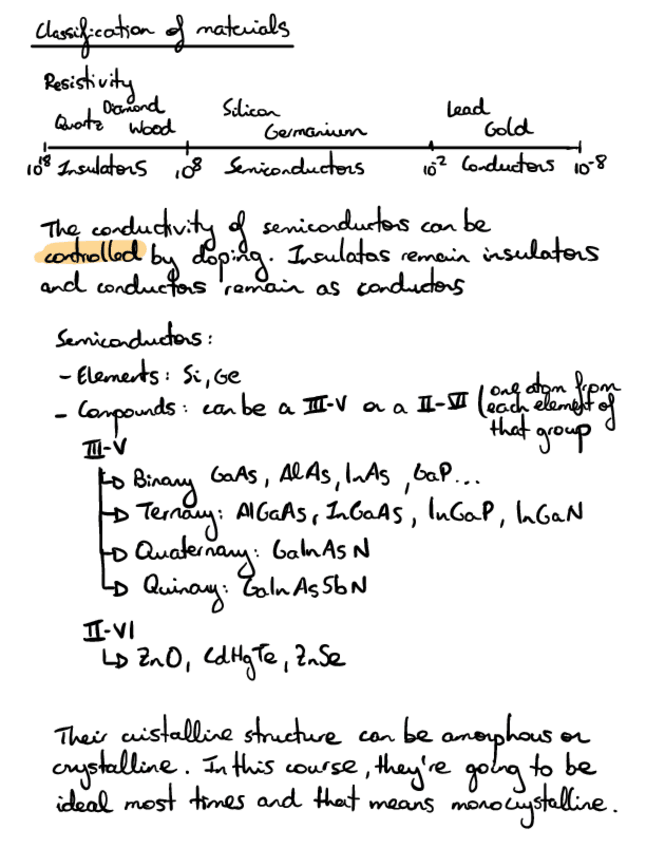 Classification of materials
Resistivity
Quartz Diamond Wood Silicon Germanium Lead Gold
10^18 Insulators 10^8 Semiconductors 10^-2 Conductors 10^-8
The conductivity of semiconductors can be
controlled by doping. Insulatos remain insulators
and conductors remain as conductors
Semiconductors:
- Elements: Si, Ge
- Compounds: can be a III-V or a II-VI (one atom from
each element of
that group
III-V
↳ Binary GaAs, AlAs, InAs, GaP...
↳ Ternary: AlGaAs, InGaAs, InGaP, InGaN
↳ Quaternary: GaInAsN
↳ Quinary: GaInAsSbN
II-VI
↳ ZnO, CdHgTe, ZnSe
Their cristalline structure can be amorphous or
crystalline. In this course, they're going to be
ideal most times and that means monocrystalline.